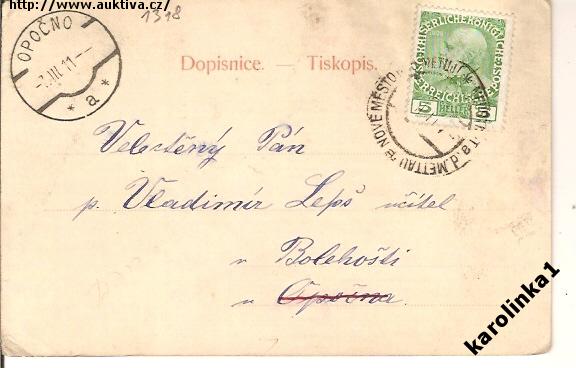 http://www.auktiva.cz/
1318
OPOČNO
-3.III.11--
* a *
Dopisnice. — Tiskopis.
KAISERLICHE KÖNIGLICHE
5 HELLER 5
NOVÉ MĚSTO
METTAU
Velectěný Pán
p. Vladimír Lepš učitel
v Bolehošti
u Opočna
karolinka1